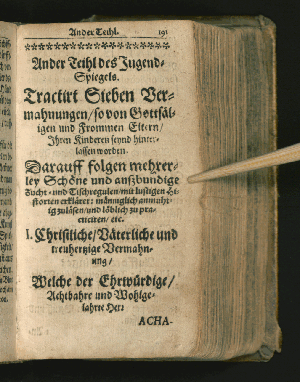 Ander Teihl. 191
Ander Teihl des Jugend-
Spiegels.
Tractirt Sieben Ver-
mahnungen/so von Gottsäl-
igen und Frommen Eltern/
Ihren Kinderen seynd hinter-
lassen worden.
Darauff folgen mehrer-
ley Schöne und außbundige
Zucht- und Tischregulen/mit lustigen Hi-
storien erkläret: männiglich anmuht-
ig zuläsen/und lödlich zu pra-
cticiren/ etc.
I. Christliche/Väterliche und
treuhertzige Vermahn-
ung/
Welche der Ehrwürdige/
Achtbahre und Wohlge-
lahrte Her:
ACHA-